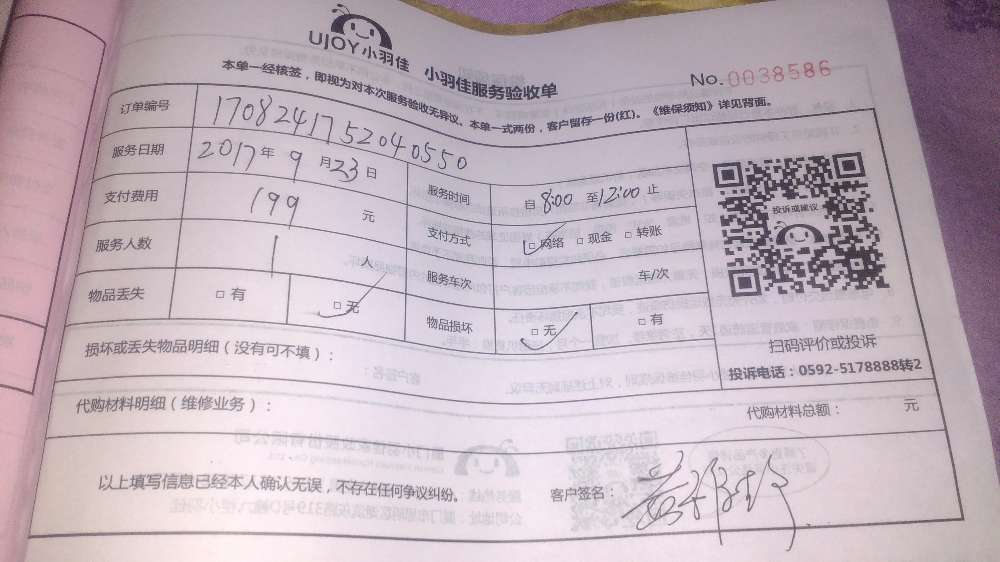 UJOY小羽佳 小羽佳服务验收单
No.0038586
本单一经核签，即视为对本次服务验收无异议。本单一式两份，客户留存一份(红)。《维保须知》详见背面。
订单编号 170824175204 0550
服务日期 2017年9月23日 服务时间 自8:00至12:00止
支付费用 199元 支付方式 □网络 □现金 □转账
服务人数 1人 服务车次 车/次
物品丢失 □有 □无 物品损坏 □无 □有
投诉或建议
扫码评价或投诉
投诉电话：0592-5178888转2
损坏或丢失物品明细（没有可不填）：
代购材料明细（维修业务）： 代购材料总额： 元
以上填写信息已经本人确认无误，不存在任何争议纠纷。 客户签名：